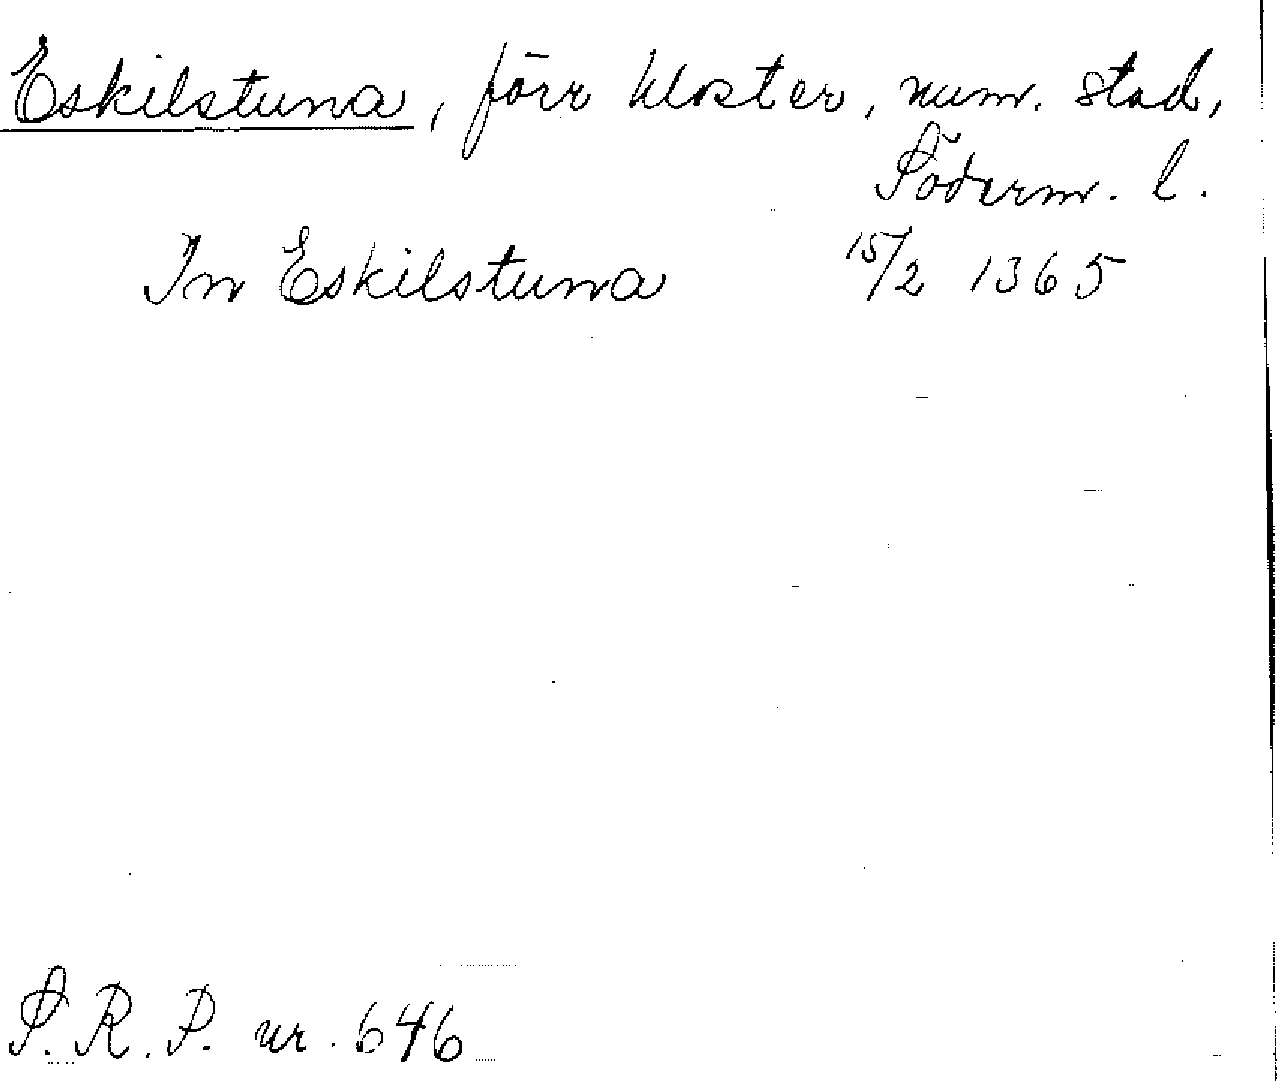 Eskilstuna, förr kloster, num. stad,
Söderm. l.
In Eskilstuna 15/2 1365
S. R. P. nr. 646